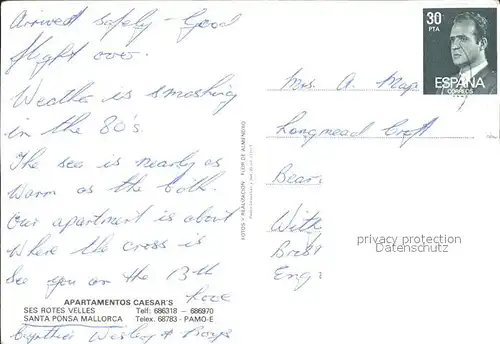 Arrived safely - Good
flight over.
Weather is smashing
in the 80's.
The sea is nearly as
warm as the bath.
Our apartment is about
where the cross is
See you on the 13th
Love
Cynthia Wesley & Boys
APARTAMENTOS CAESAR'S
SES ROTES VELLES Telf: 686318 – 686970
SANTA PONSA MALLORCA Telex. 68783 - PAMO-E
FOTOS Y REALIZACION FLOR DE ALMENDRO
30
PTA
ESPAÑA
CORREOS
Mrs. A. Map
Longmead Croft
Bear
With
Brist
Eng
privacy protection
Datenschutz